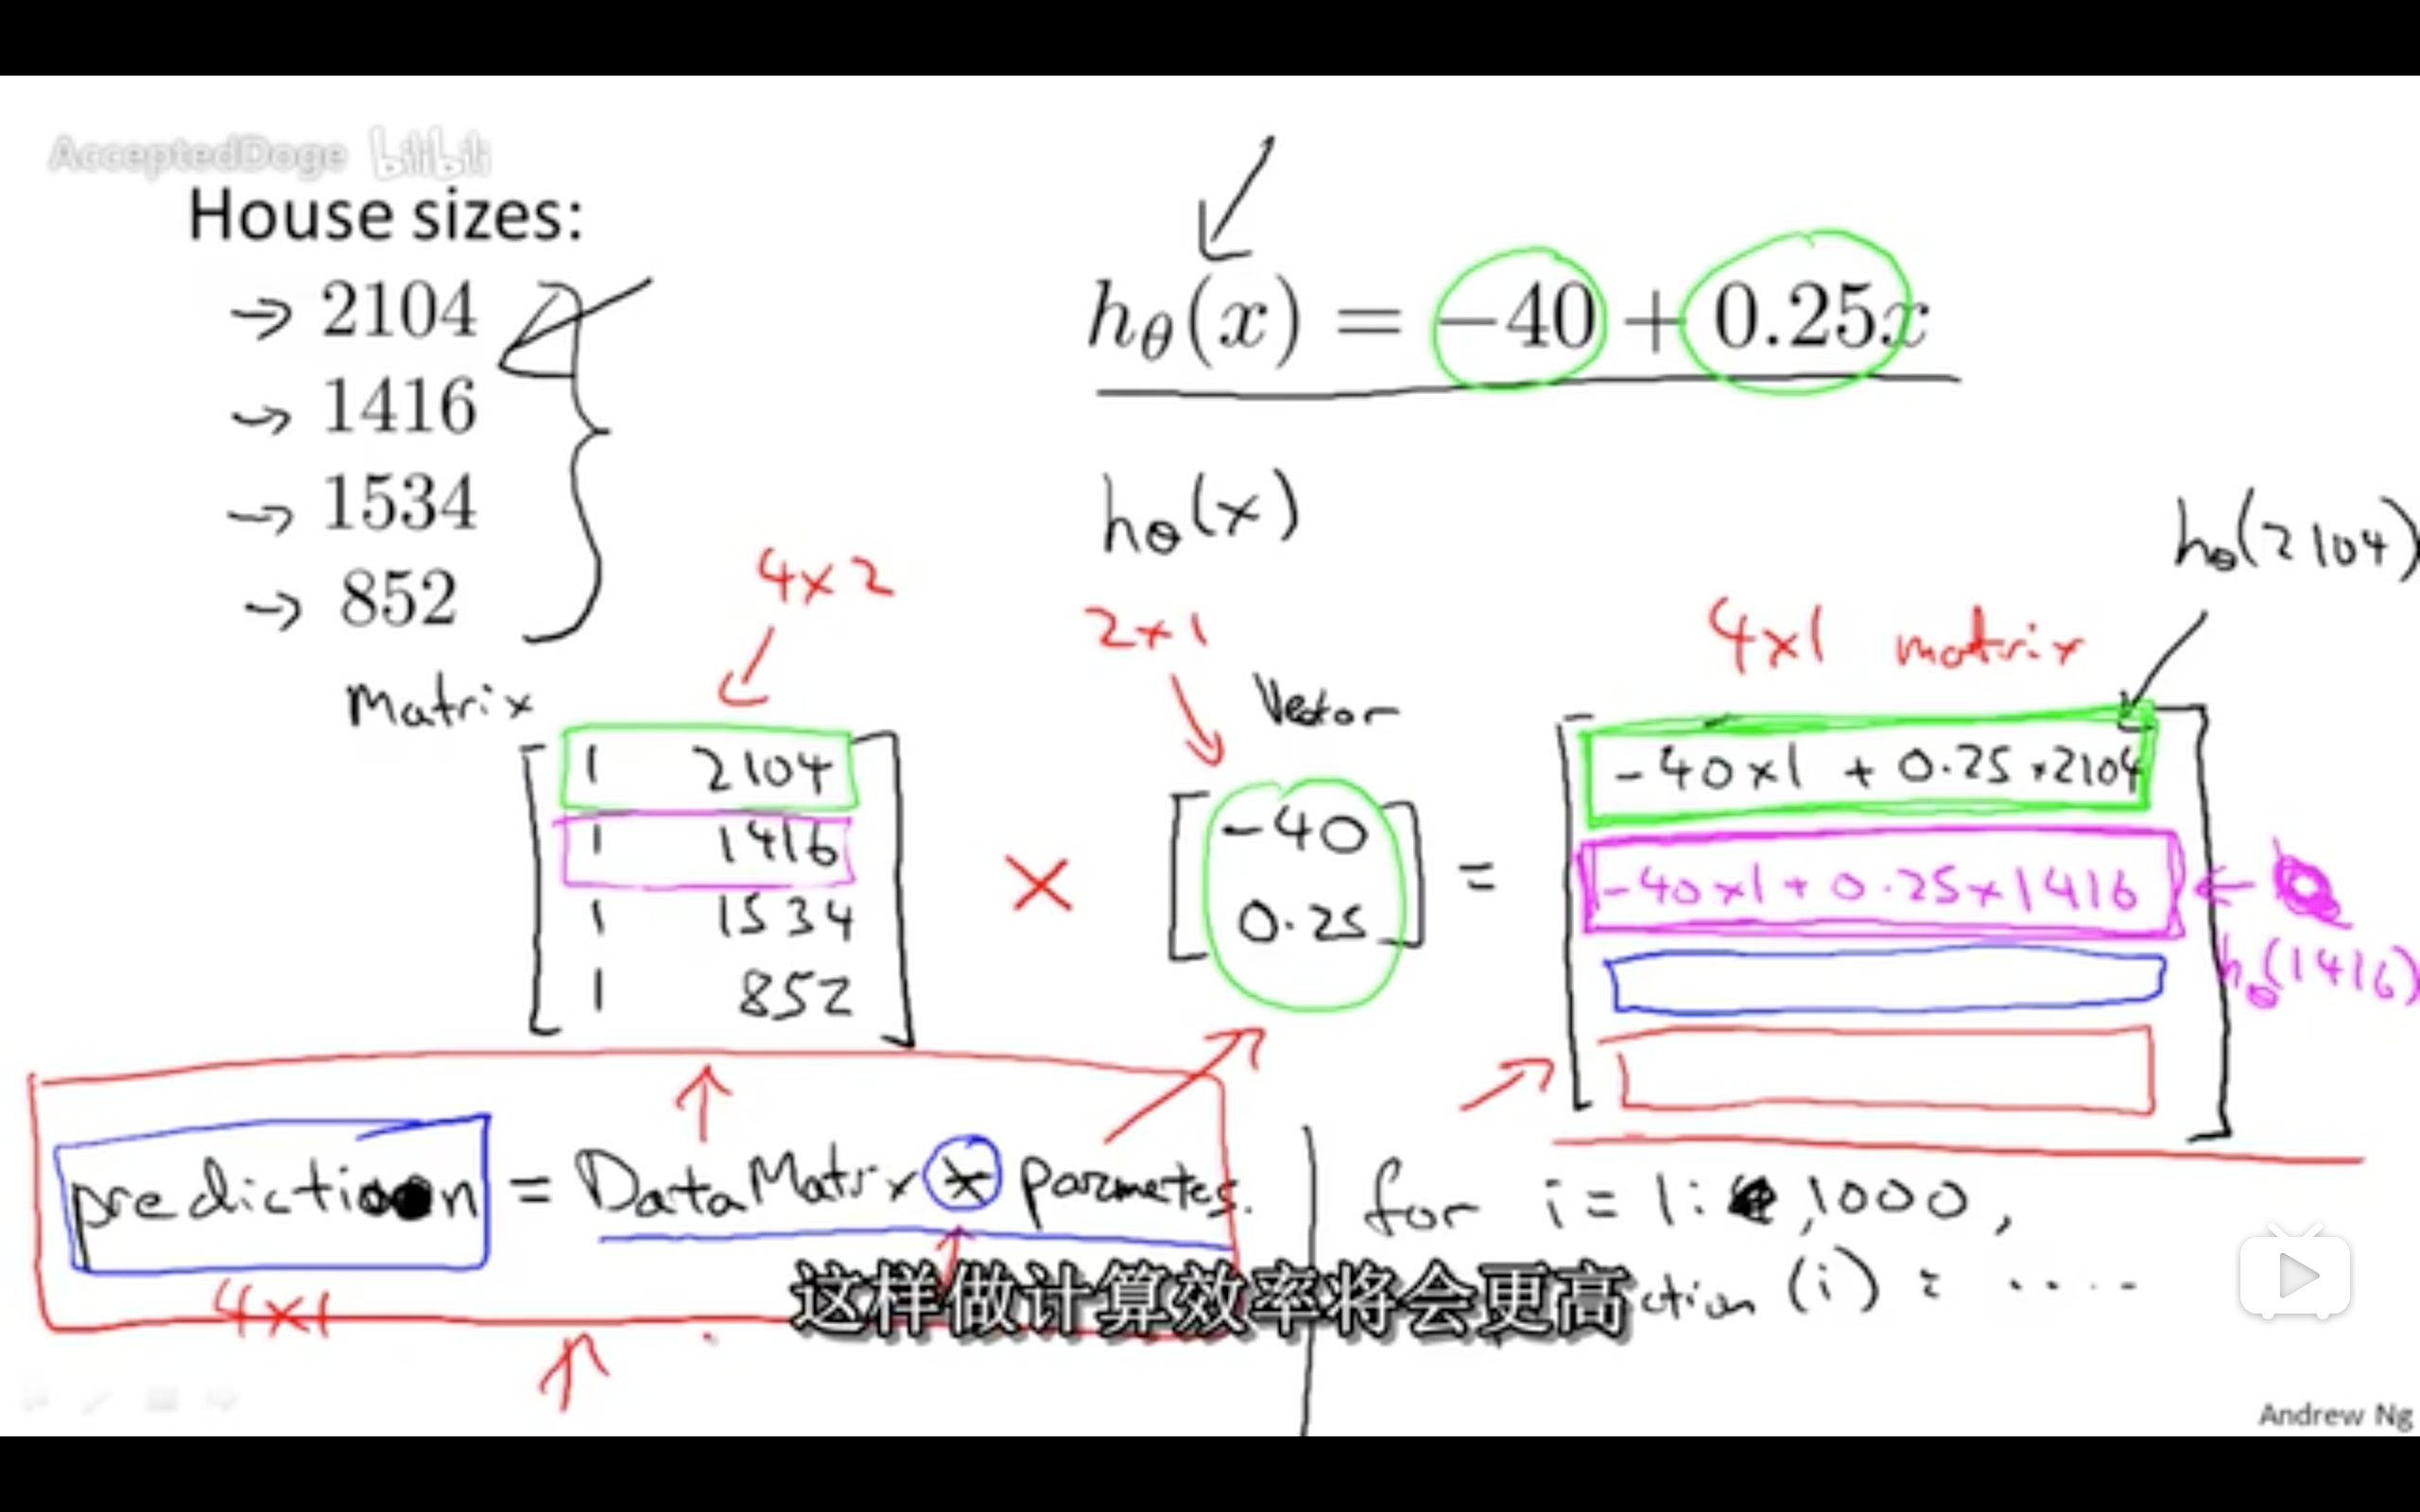 AcceptedDoge bilibili
House sizes:
→ 2104
→ 1416
→ 1534
→ 852
hθ(x) = −40 + 0.25x
hθ(x)
hθ(2104)
4x2
2x1
4x1 matrix
Matrix
Vector
1 2104
1 1416
1 1534
1 852
×
-40
0.25
=
-40x1 + 0.25x2104
-40x1+0.25x1416
hθ(1416)
prediction = DataMatrix * parmetes.
4x1
for i=1:1000,
ction (i) = ....
这样做计算效率将会更高
Andrew Ng